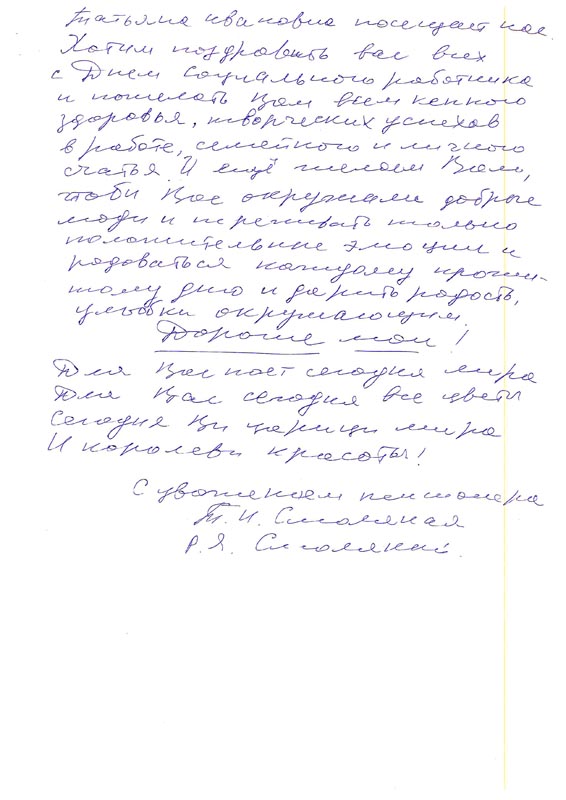 Татьяна Ивановна посещает нас.
Хотим поздравить вас всех
с Днем социального работника
и пожелать Вам всем крепкого
здоровья, творческих успехов
в работе, семейного и личного
счастья. И ещё желаем Вам,
чтоби Вас окружали доброе
люди и переживать только
положительные эмоции и
радоваться каждому прожи-
тому дню и дарить радость,
улыбки окружающим.
Дорогие мои!
Для Вас поёт сегодня мира
Для Вас сегодня все цветы
Сегодня Ви царици мира
И королеви красоты!
С уважением пенсионера
Т. И. Смоляная
Р. Я. Смоляний.